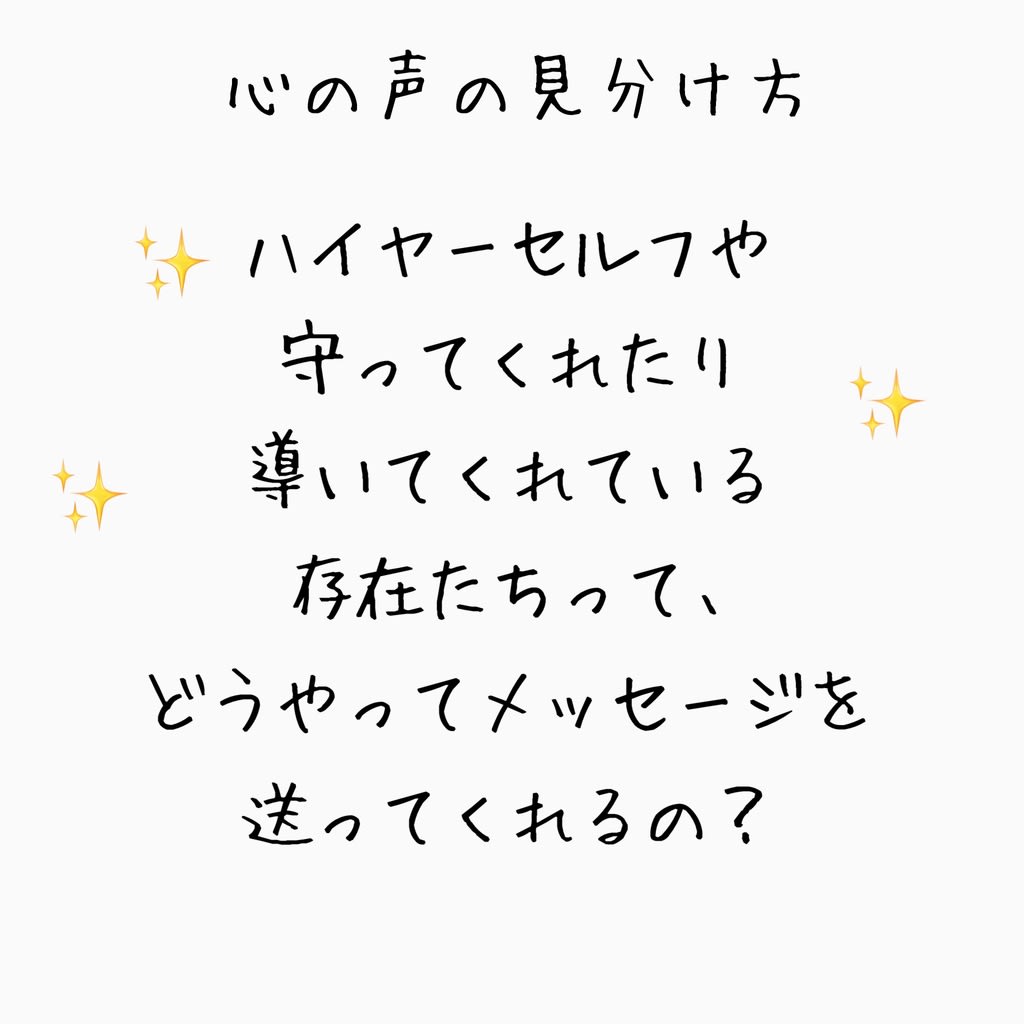 心の声の見分け方
ハイヤーセルフや
守ってくれたり
導いてくれている
存在たちって、
どうやってメッセージを
送ってくれるの？